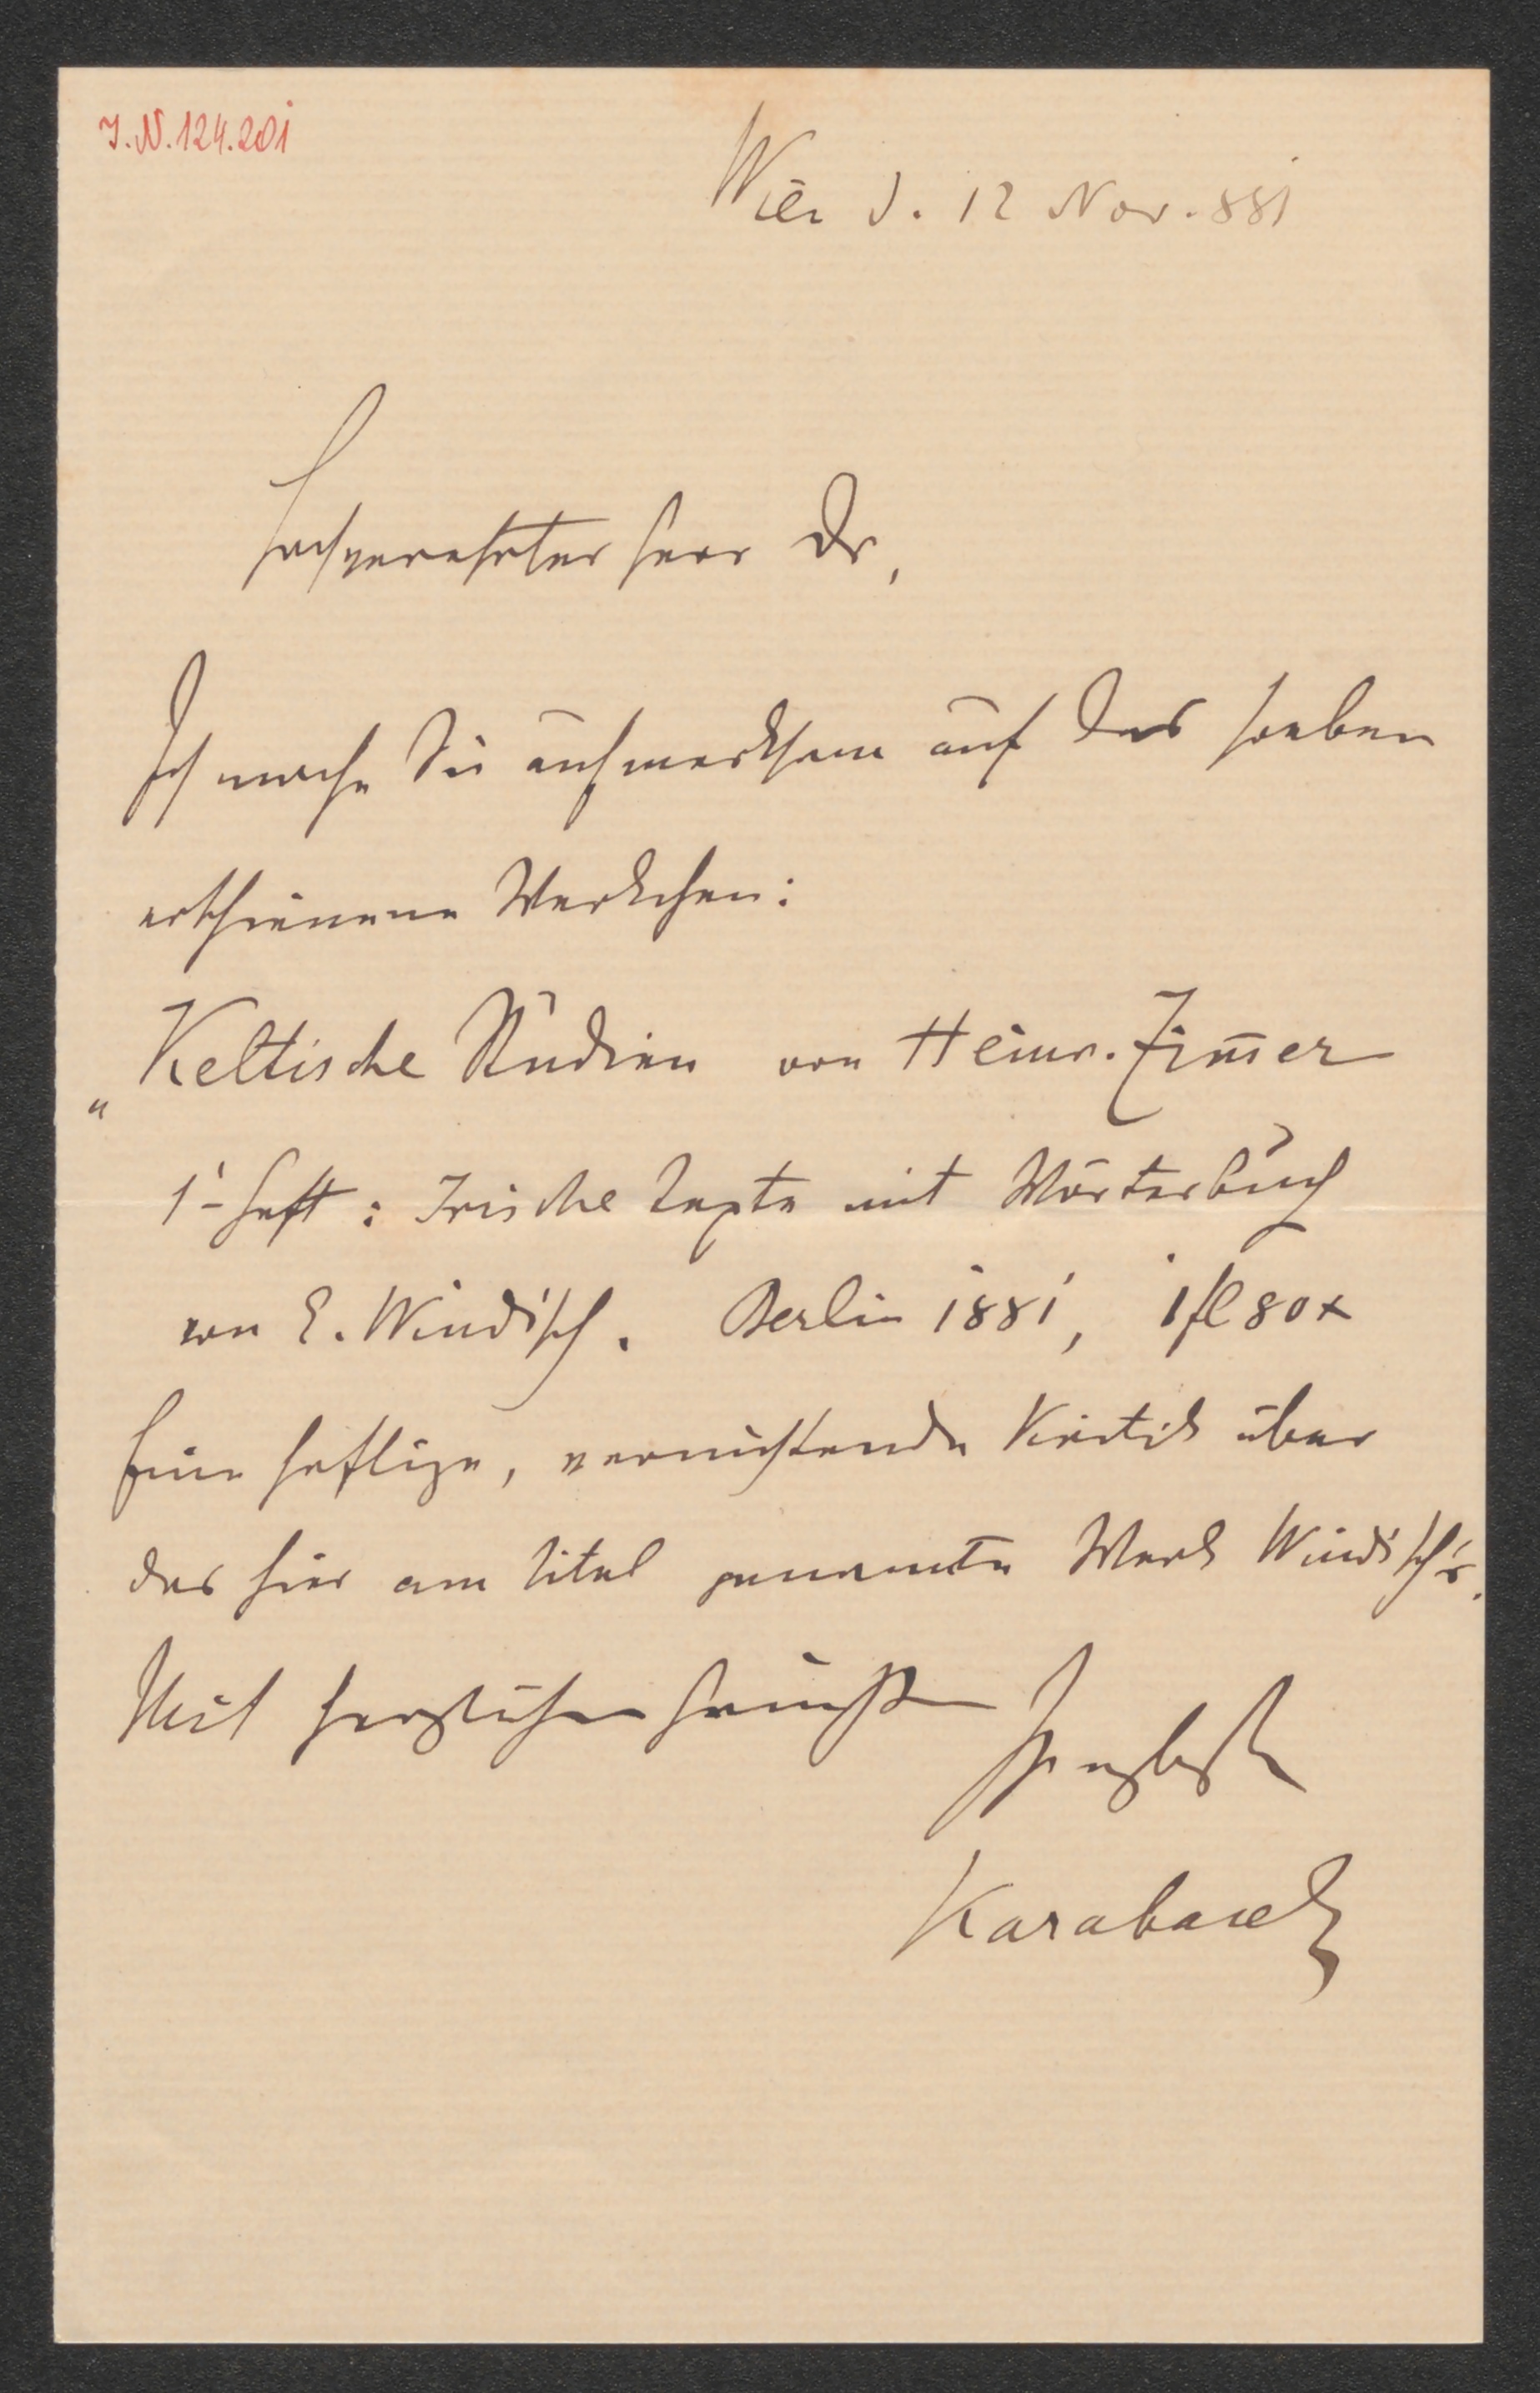 I.N. 124.201
Wien d. 12 Nov. 881
Hochverehrter Herr Dr,
Ich mache Sie aufmerksam auf das soeben
erschienene Werkchen:
„Keltische Studien von Heinr. Zim̅er
1. Heft: Irische Texte mit Wörterbuch
von E. Windisch. Berlin 1881, 1 fl 80 x
Eine heftige, vernichtende Kritik über
das hier am Titel genannte Werk Windisch's.
Mit herzlichen Grüßen
Ihr ergebenster
Karabacek